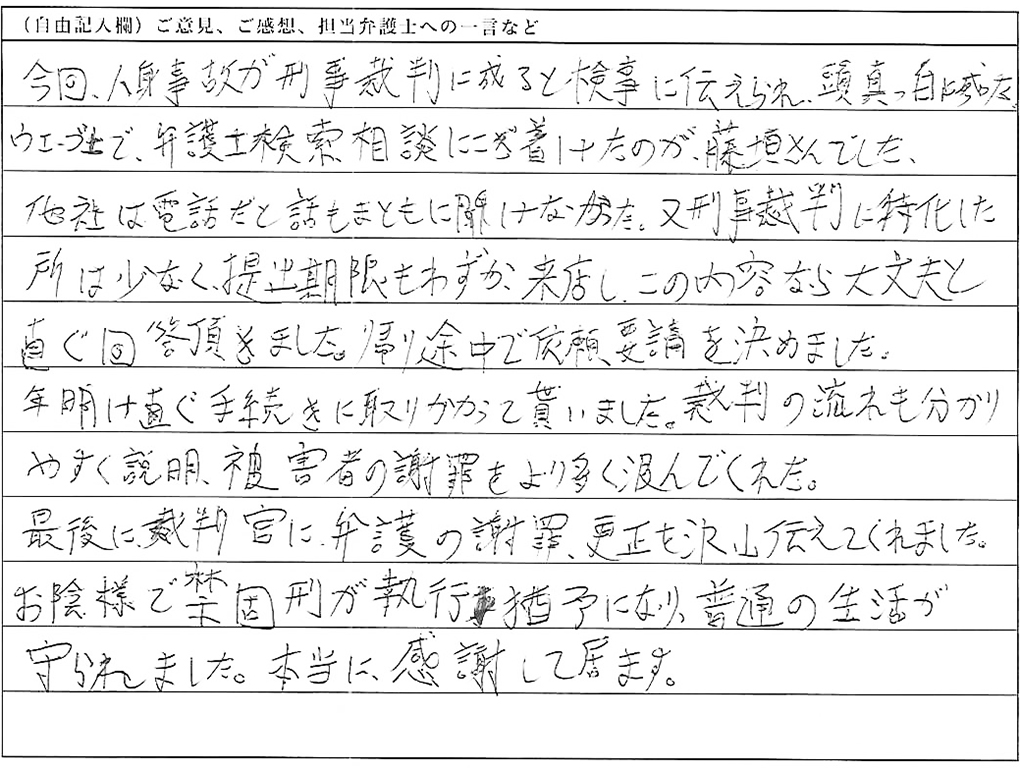 （自由記入欄）ご意見、ご感想、担当弁護士への一言など
今回、人身事故が刑事裁判に成ると検事に伝えられ、頭真っ白に成った。
ウエーブ上で、弁護士検索相談にこぎ着けたのが、藤垣さんでした、
他社は電話だと話もまともに聞けなかった。又刑事裁判に特化した
所は少なく、提出期限もわずか、来店し、この内容なら大丈夫と
直ぐ回答頂きました。帰り途中で依頼要請を決めました。
年明け直ぐ手続きに取りかかって貰いました。裁判の流れも分かり
やすく説明、被害者の謝罪をより多く汲んでくれた。
最後に、裁判官に、弁護の謝罪、更正を沢山伝えてくれました。
お陰様で禁固刑が執行猶予になり、普通の生活が
守られました。本当に、感謝して居ます。